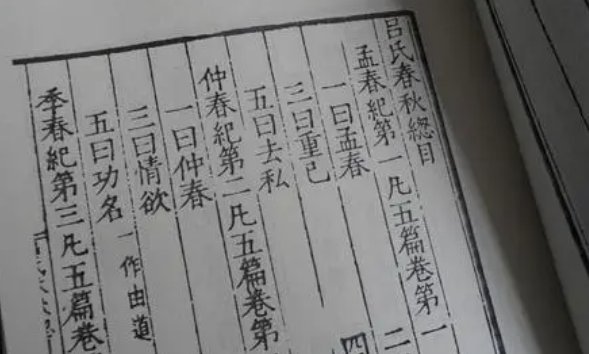 呂氏春秋總目
孟春紀第一凡五篇卷第一
一曰孟春 二
三曰重己 四
五曰去私
仲春紀第二凡五篇卷第
一曰仲春
三曰情欲
五曰功名 一作由道
季春紀第三凡五篇卷